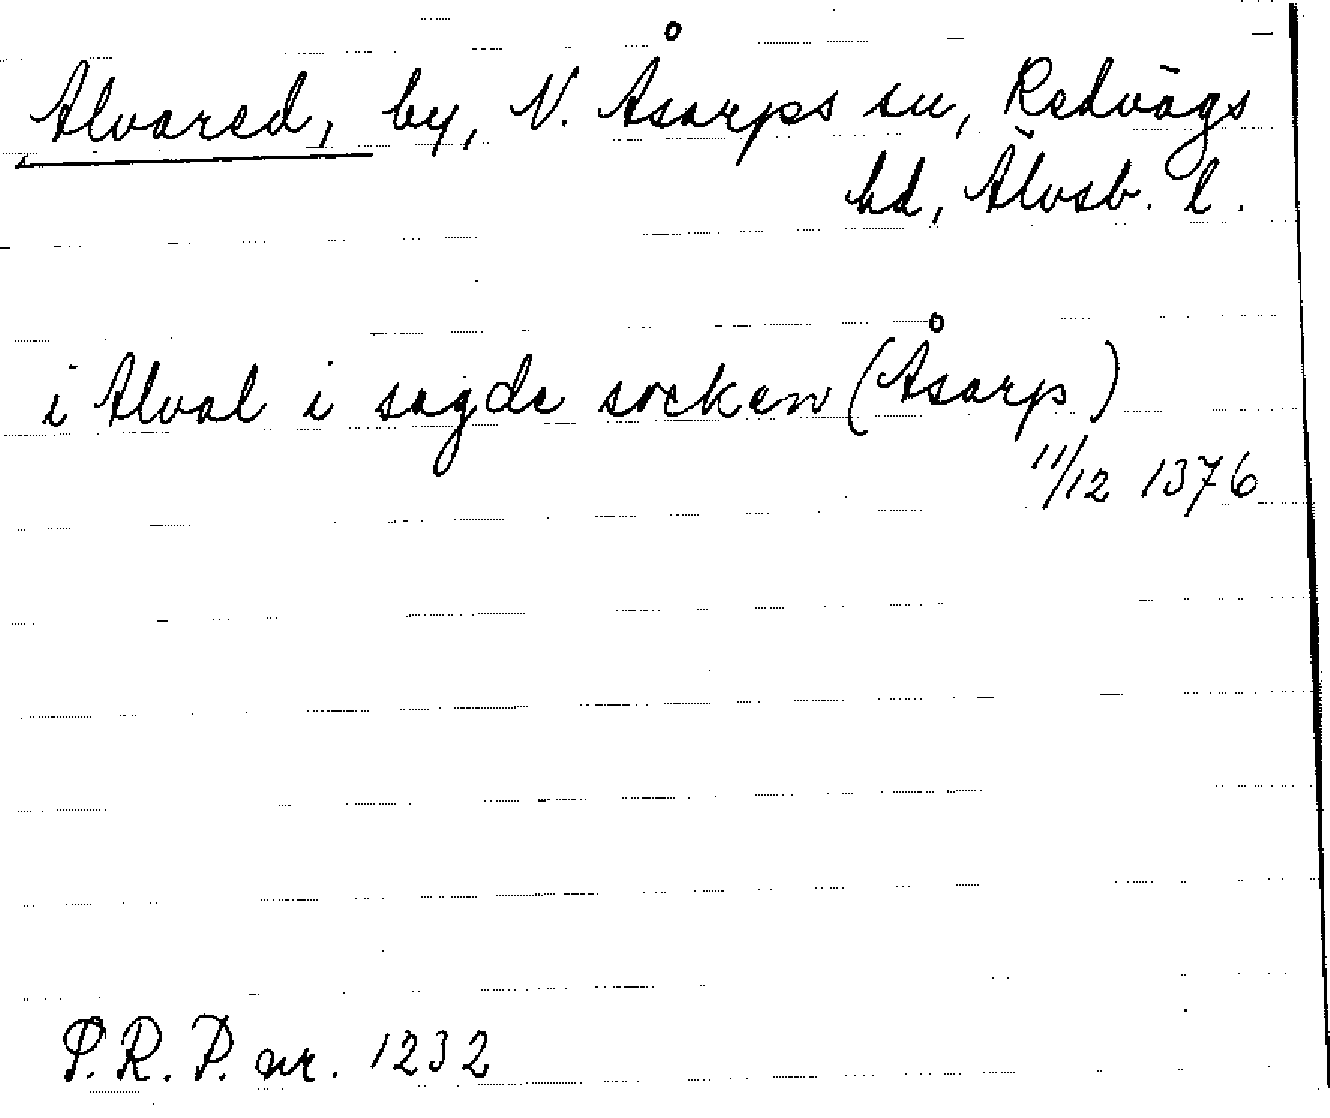 Alvared, by, N. Åsarps sn, Redvägs
hd, Älvsb. l.
i Alval i sagde socken (Åsarp)
11/12 1376
P.R.P. nr. 1232